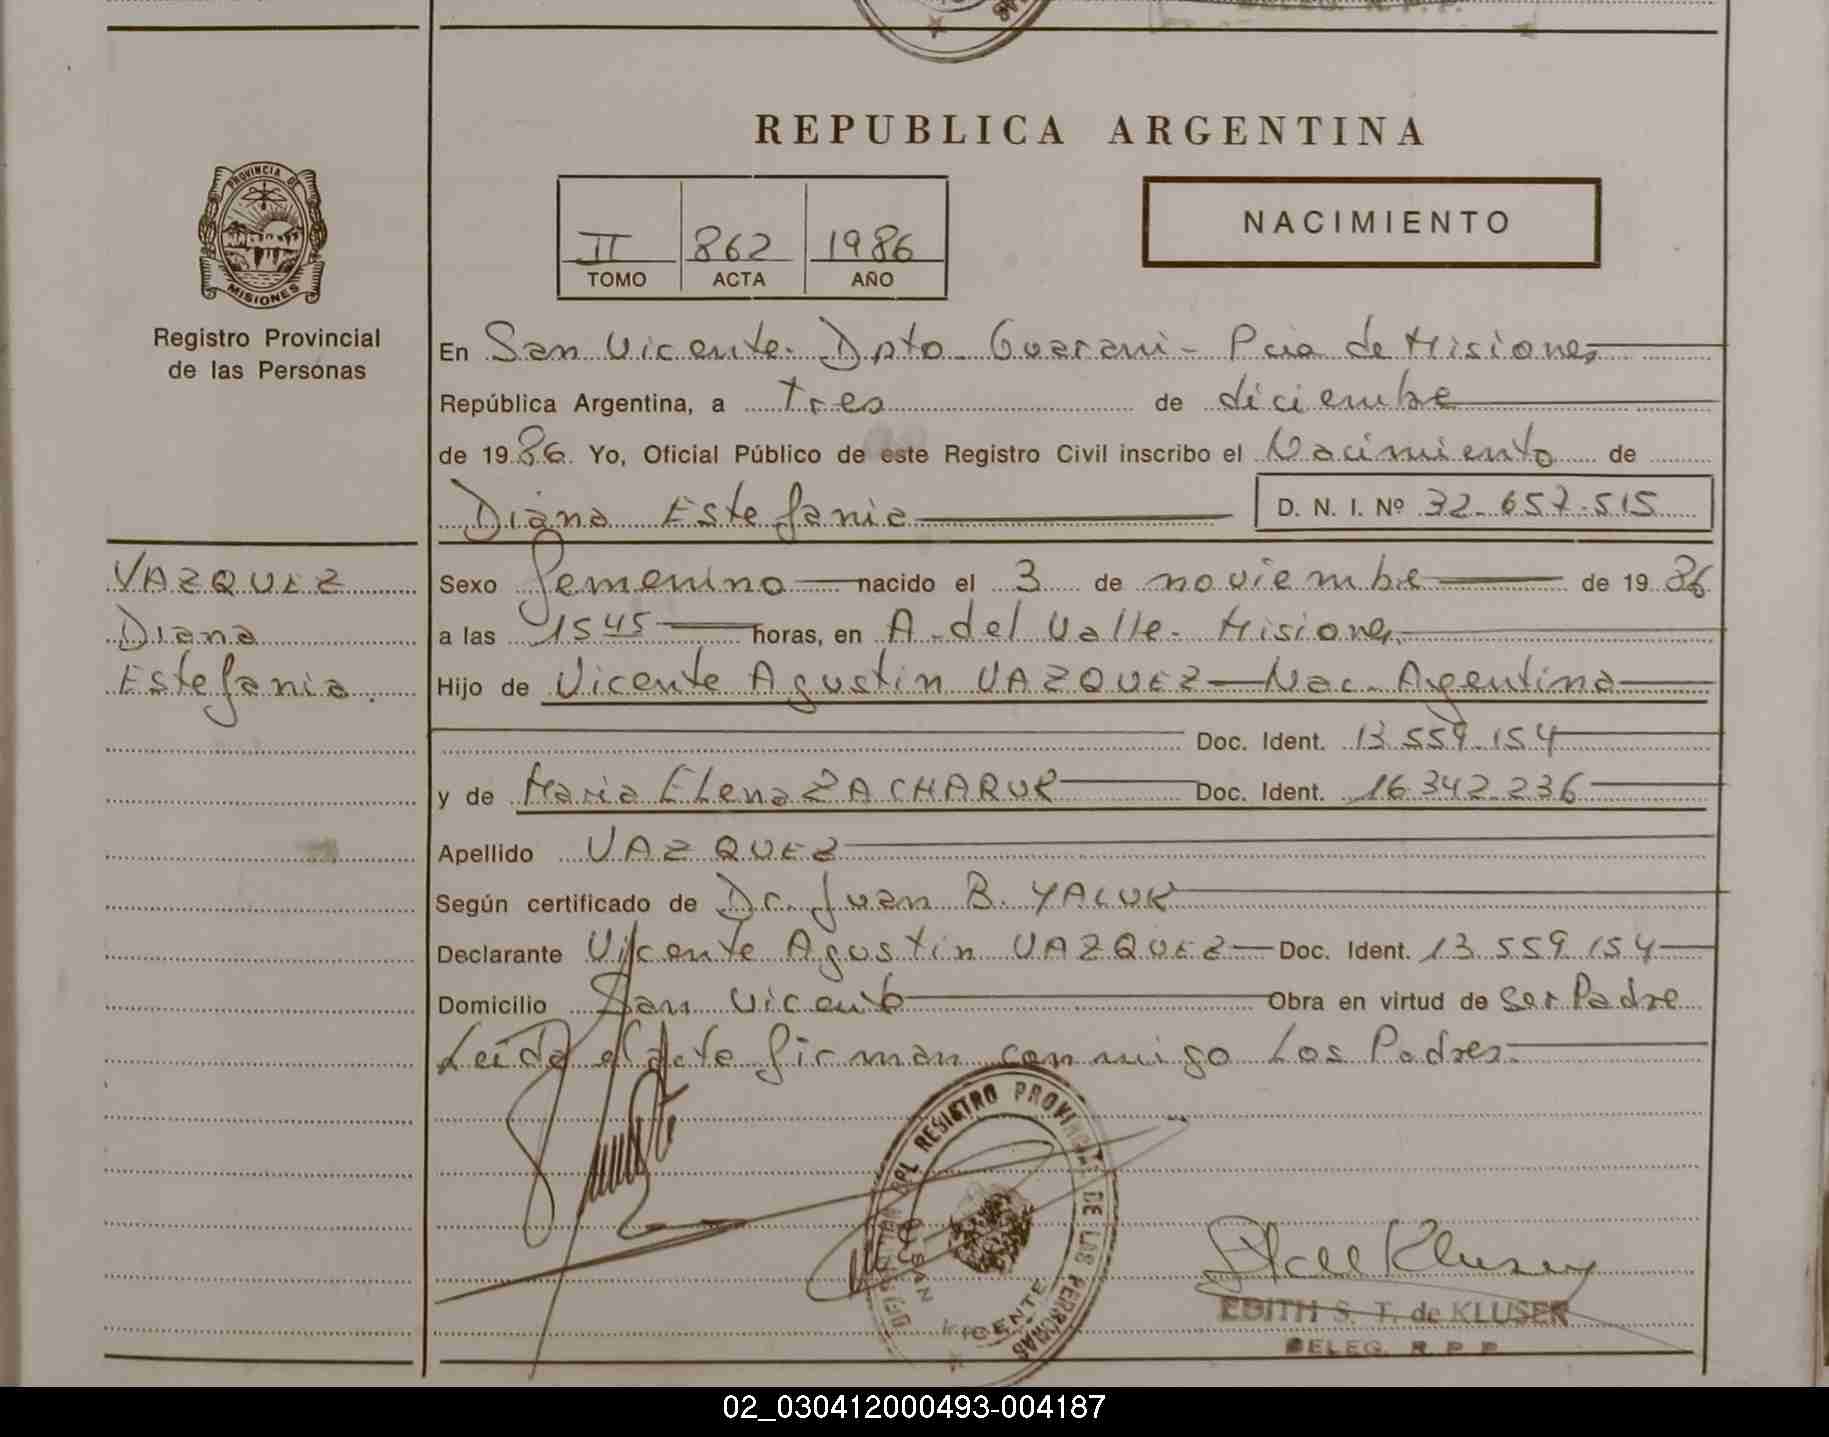 REPUBLICA ARGENTINA
PROVINCIA DE
MISIONES
Registro Provincial
de las Personas
II 862 1986
TOMO ACTA AÑO
NACIMIENTO
En San Vicente. Dpto Guarani - Pcia de Misiones
República Argentina, a tres de diciembre
de 1986. Yo, Oficial Público de este Registro Civil inscribo el Nacimiento de
Diana Estefania D. N. I. Nº 32.657.515
VAZQUEZ
Diana
Estefania.
Sexo femenino nacido el 3 de noviembre de 1986
a las 1545 horas, en A. del Valle. Misiones
Hijo de Vicente Agustin VAZQUEZ - Nac. Argentina
Doc. Ident. 13.559.154
y de Maria Elena ZACHARUK Doc. Ident. 16.342.236
Apellido VAZQUEZ
Según certificado de Dr. Juan B. YALUK
Declarante Vicente Agustin VAZQUEZ - Doc. Ident. 13.559.154
Domicilio San Vicente Obra en virtud de ser Padre
Leída el acta firman conmigo Los Padres.
REGISTRO PROVINCIAL DE LAS PERSONAS
SAN VICENTE
EDITH S. T. de KLUSER
DELEG. R. P. P.
02_030412000493-004187